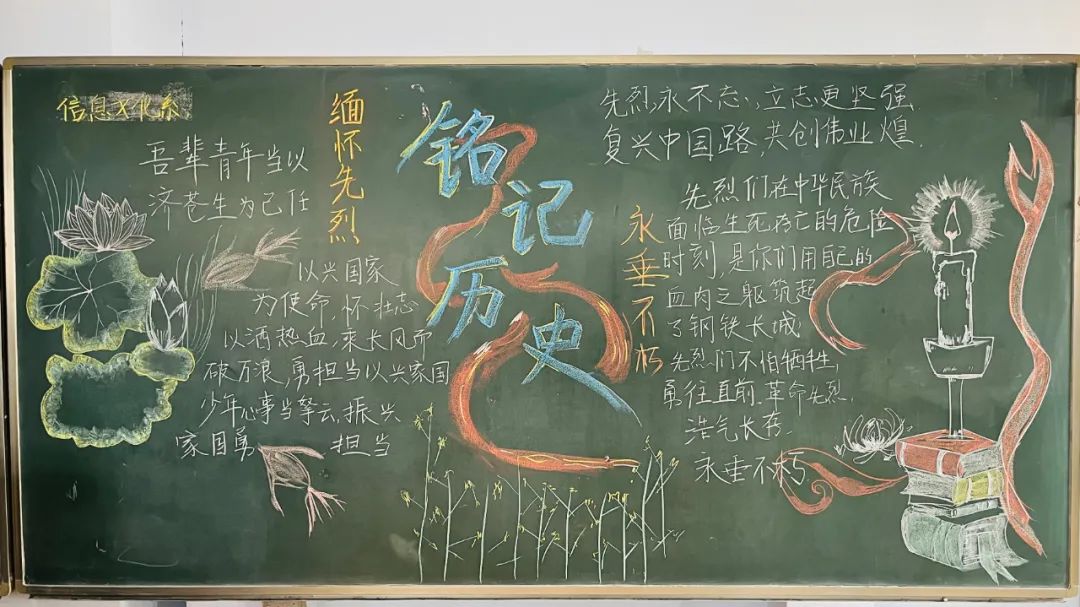 信息文化系
缅怀先烈
吾辈青年当以
济苍生为己任
以兴国家
为使命,怀壮志
以洒热血,乘长风而
破万浪,勇担当以兴家国
少年心事当拏云,振兴
家国勇 担当
铭记历史
先烈永不忘,立志更坚强
复兴中国路,共创伟业煌.
永垂不朽
先烈们在中华民族
面临生死存亡的危险
时刻,是你们用自己的
血肉之躯筑起
了钢铁长城
先烈们不怕牺牲,
勇往直前.革命先烈.
浩气长存.
永垂不朽